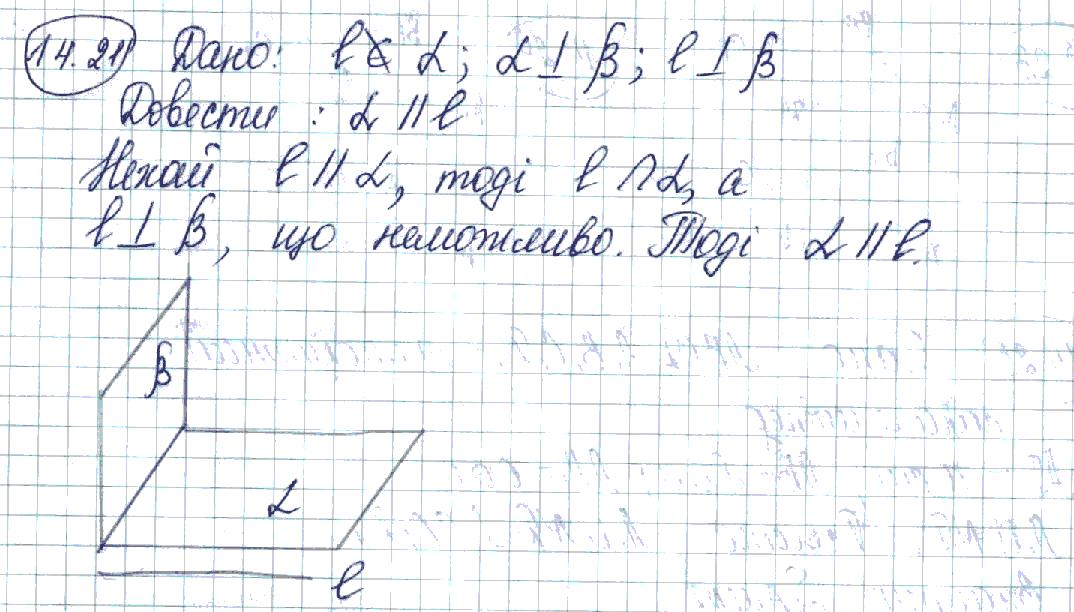 14.21 Дано: l ⊄ α; α ⊥ β; l ⊥ β
Довести : α || l
Нехай l || α, тоді l ∩ α, а
l ⊥ β, що неможливо. Тоді α || l.
β
α
l